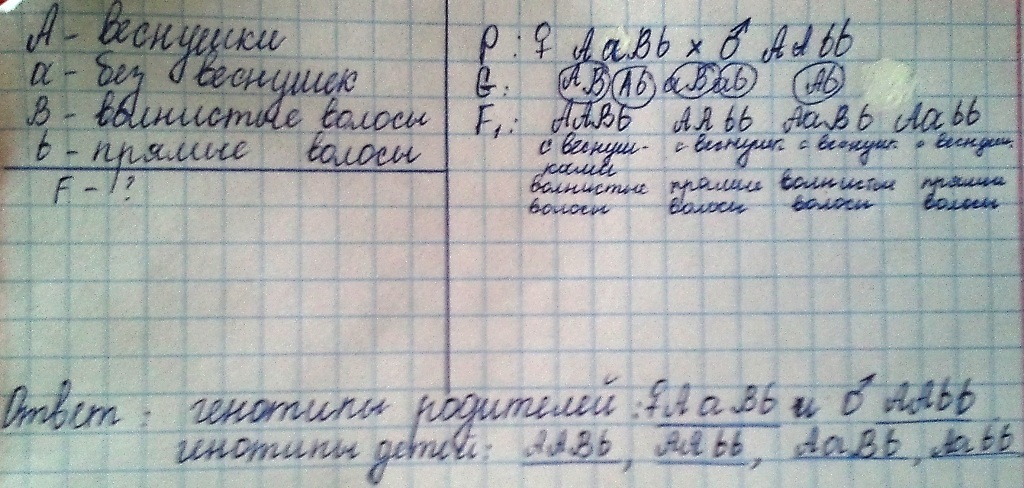 А - веснушки
а - без веснушек
В - волнистые волосы
b - прямые волосы
F - ?
P: ♀ AaBb × ♂ AAbb
G: AB Ab aB ab Ab
F₁: AABb AAbb AaBb Aabb
с веснуш- с веснушк. с веснушк. с веснушк.
ками
волнистые прямые волнистые прямые
волосы волосы волосы волосы
Ответ: генотипы родителей: ♀ AaBb и ♂ AAbb
генотипы детей: AABb, AAbb, AaBb, Aabb